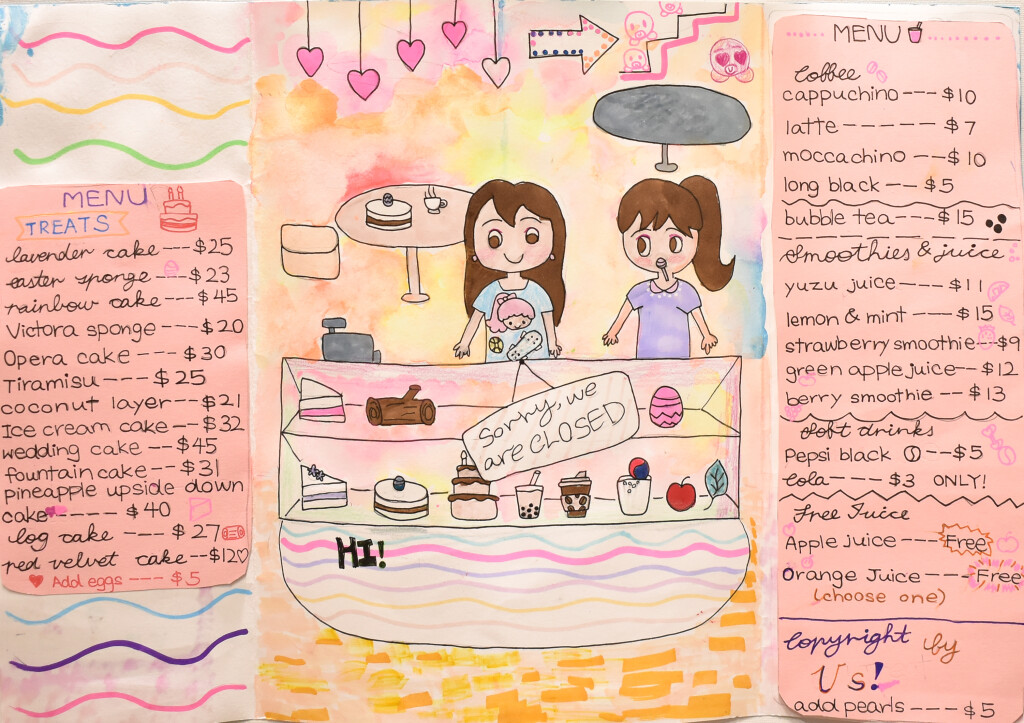 MENU
TREATS
lavender cake --- $25
easter sponge --- $23
rainbow cake --- $45
Victora sponge --- $20
Opera cake --- $30
Tiramisu --- $25
coconut layer -- $21
Ice cream cake -- $32
wedding cake -- $45
fountain cake -- $31
pineapple upside down
cake ----- $40
log cake --- $27
red velvet cake -- $12
Add eggs --- $5
Sorry, we
are CLOSED
HI!
MENU
Coffee
cappuchino --- $10
latte ----- $7
moccachino -- $10
long black -- $5
bubble tea --- $15
Smoothies & juice
yuzu juice --- $11
lemon & mint --- $15
strawberry smoothie - $9
green apple juice -- $12
berry smoothie -- $13
Soft drinks
Pepsi black -- $5
Cola --- $3 ONLY!
Free Juice
Apple juice --- Free
Orange Juice --- Free
(choose one)
Copyright by
Us!
add pearls --- $5